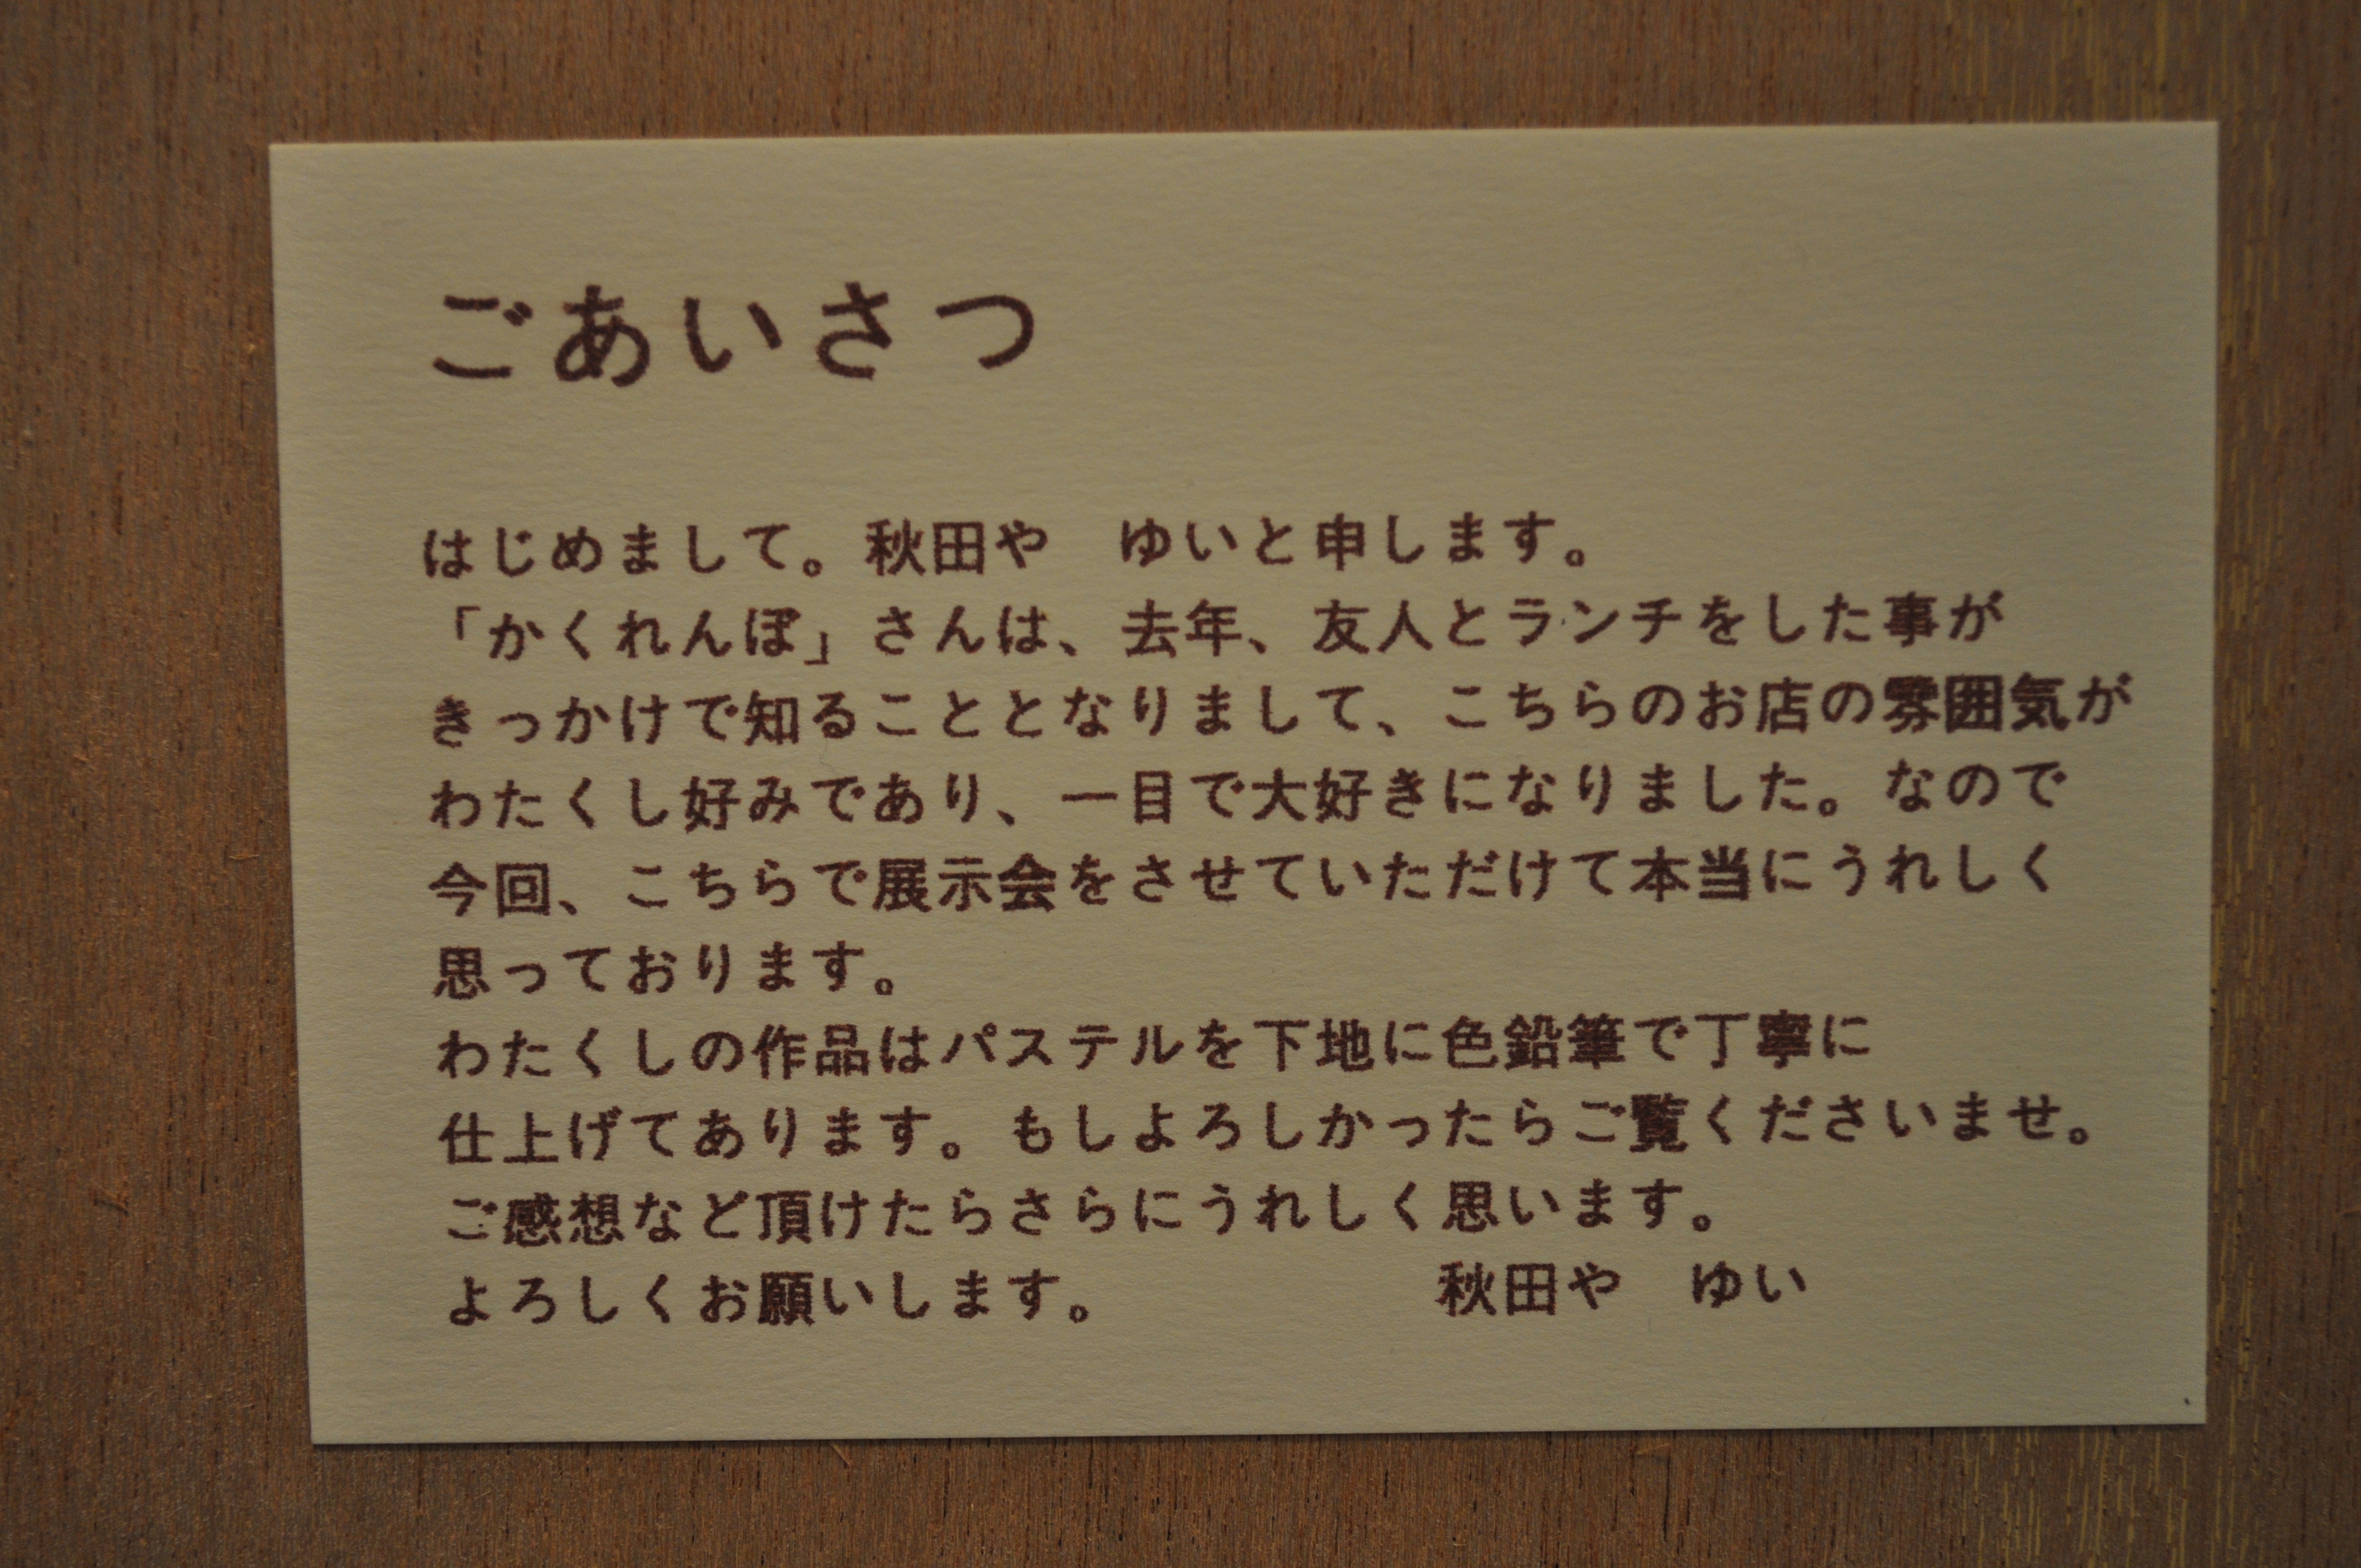 ごあいさつ
はじめまして。秋田や　ゆいと申します。
「かくれんぼ」さんは、去年、友人とランチをした事が
きっかけで知ることとなりまして、こちらのお店の雰囲気が
わたくし好みであり、一目で大好きになりました。なので
今回、こちらで展示会をさせていただけて本当にうれしく
思っております。
わたくしの作品はパステルを下地に色鉛筆で丁寧に
仕上げてあります。もしよろしかったらご覧くださいませ。
ご感想など頂けたらさらにうれしく思います。
よろしくお願いします。　　　　　秋田や　ゆい